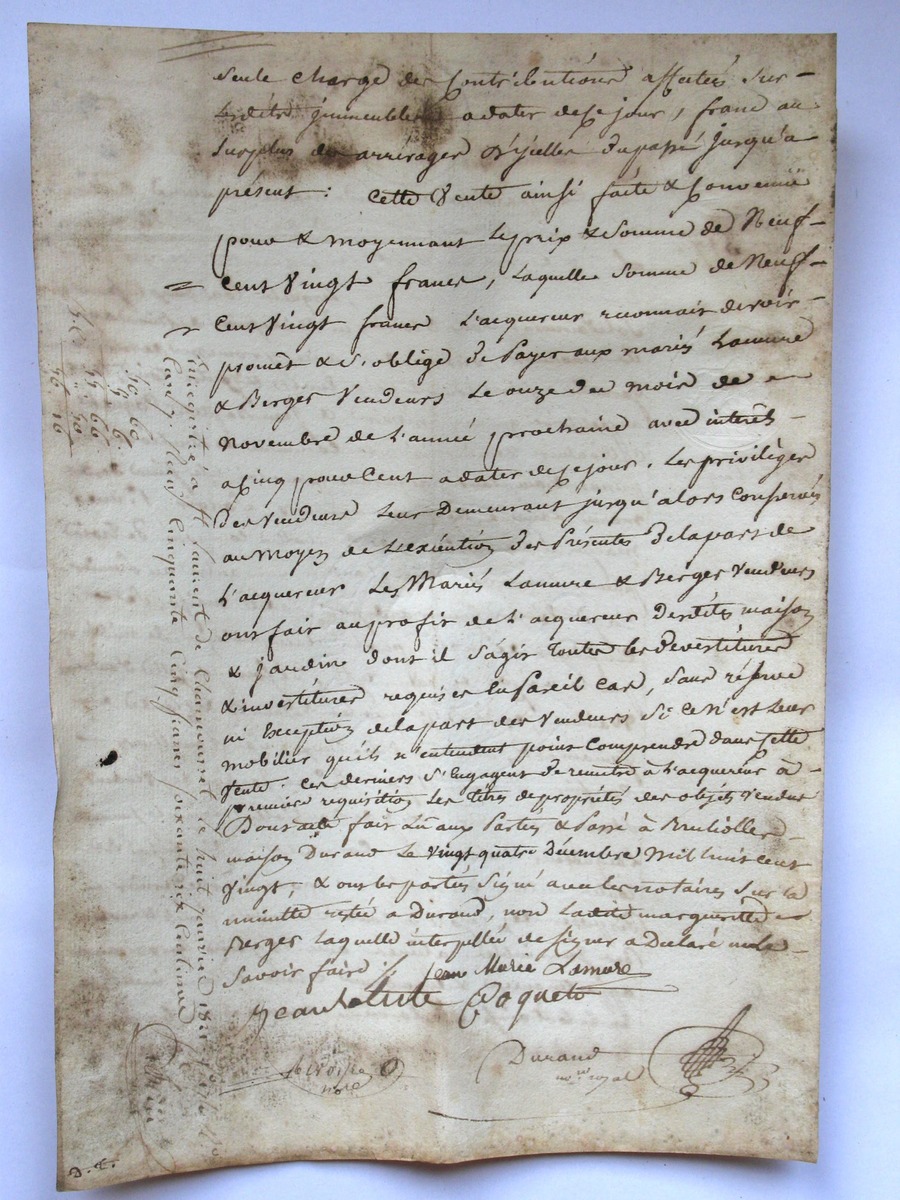 seule charge des Contributions affectées sur-
lesdits immeubles a dater de ce jour, franc au
surplus des arrérages d'ycelles du passé jusqu'a
présent : cette Vente ainsi faite & Convenuë
pour & moyennant le prix & somme de Neuf-
= Cent Vingt francs, laquelle somme de Neuf-
Cent Vingt francs L'acquereur reconnait devoir-
promet & s'oblige de Payer aux mariés Lamure
& Berger Vendeurs Le onze du mois de
Novembre de l'année prochaine avec interêts
a Cinq pour Cent a dater de ce jour. Les privilèges
des Vendeurs leur Demeurant jusqu'alors Conservés
au moyen de L'exécution des Présentes de la part de
L'acquereur Les Mariés Lamure & Berger Vendeurs
ont fait au profit de L'acquereur Desdits maison
& jardin dont il s'agit toutes les devestitures
& investitures requises En Pareil Cas, Sans réserve
ni Exception de la part des Vendeurs Si Ce n'est leur
mobilier qu'ils n'entendent point Comprendre dans cette
Vente. Ces derniers S'Engagent de remettre à L'acquereur à-
première requisition Les titres de propriétés des objets Vendus
Dont acte fait Lu aux Parties & Passé à Brullioles
maison Durand Le Vingt quatre Décembre Mil huit cent
Vingt, & ont les parties Signé avec les notaires Sur la
minutte restée a Durand, non Ladite marguerite
Berger Laquelle interpellée de Signer a Declaré ne le
Savoir faire.
jean Marie Lamure
Coquet
Durand
no.re royal
no.re
D. C.
Enregistré à St Laurent de Chamousset le huit janvier 1821
Cinquante Cinq francs soixante six centimes
50 60
55 66